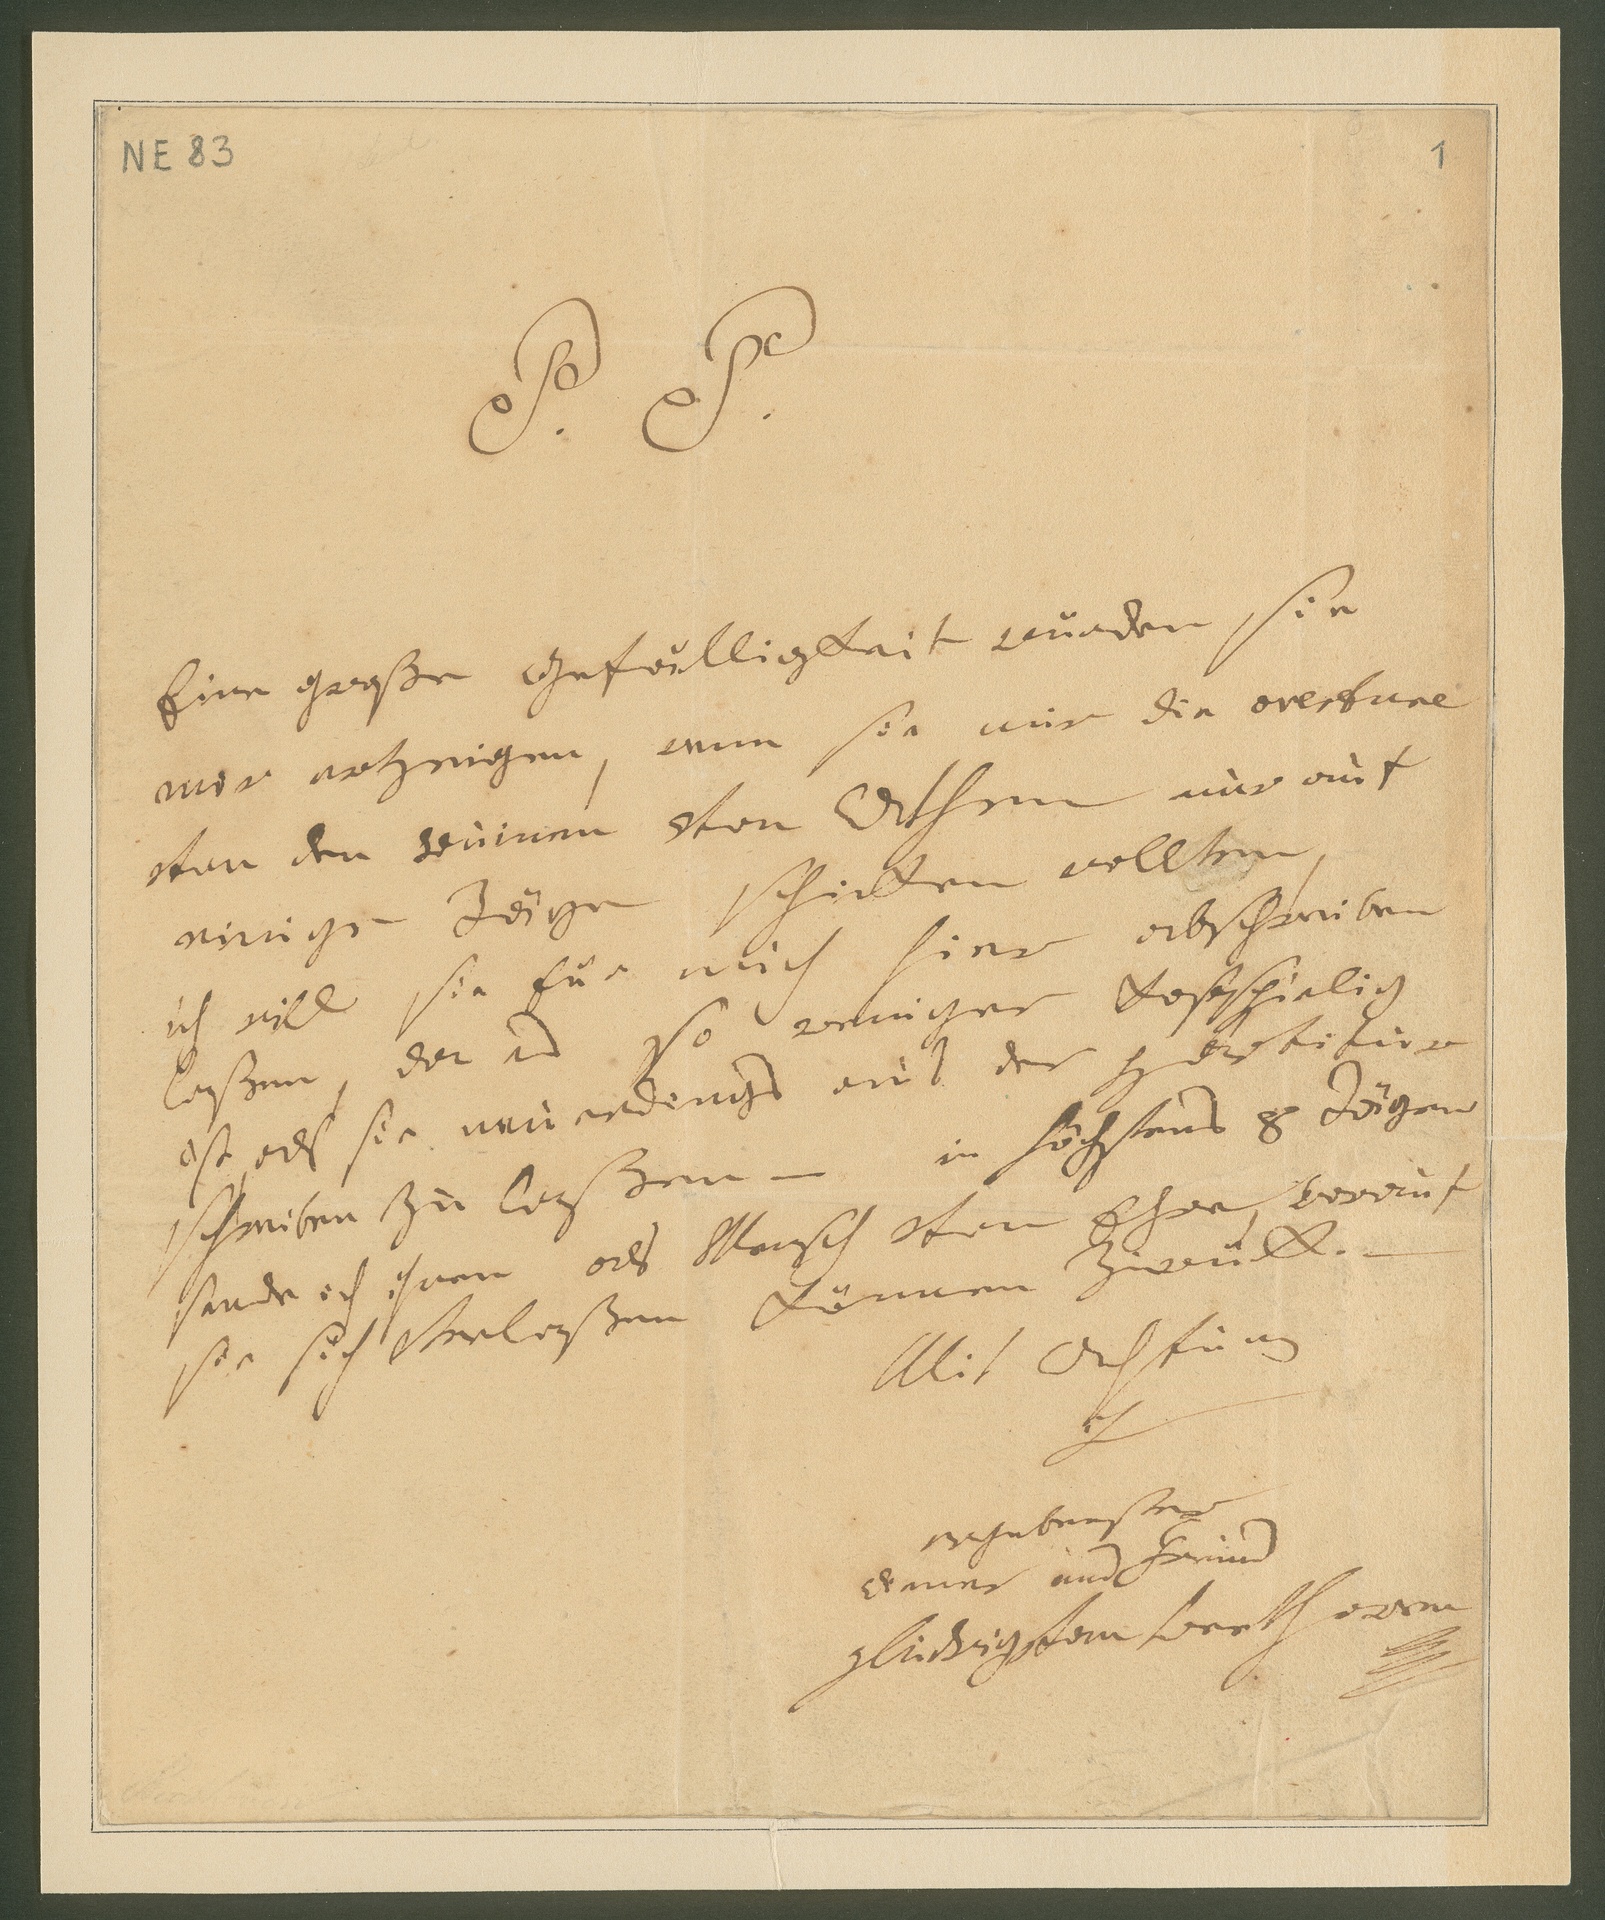 NE 83
1
P. P.
Eine große Gefälligkeit würden sie
mir erzeigen, wenn sie mir die overture
von den ruinen von Athen nur auf
einige Täge schicken wollten,
ich will sie für mich hier abschreiben
laßen, da es so weniger kostspielig
ist, als sie neuerdings aus der partitur
schreiben zu laßen — in höchstens 8 Tägen
sende ich ihnen als Mensch von Ehre, worauf
sie sich verlaßen können zurück. —
Mit Achtung
ich
ergebenster
diener und Freund
ludwig van Beethowen